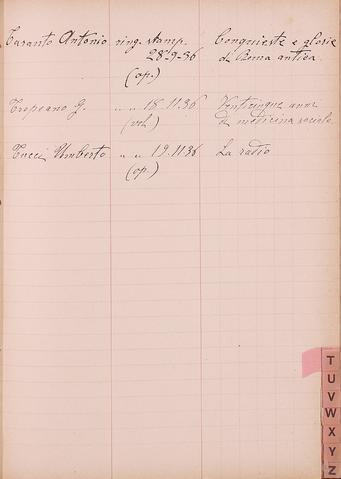 Taranto Antonio ring. stamp. Conquiste e glorie
28-9-36 di Roma antica
(op.)
Tropeano G. " " 18.11.36 Venticinque anni
(vol.) di medicina sociale
Tucci Umberto " " 19.11.36 La radio
(op.)
T
U
V
W
X
Y
Z